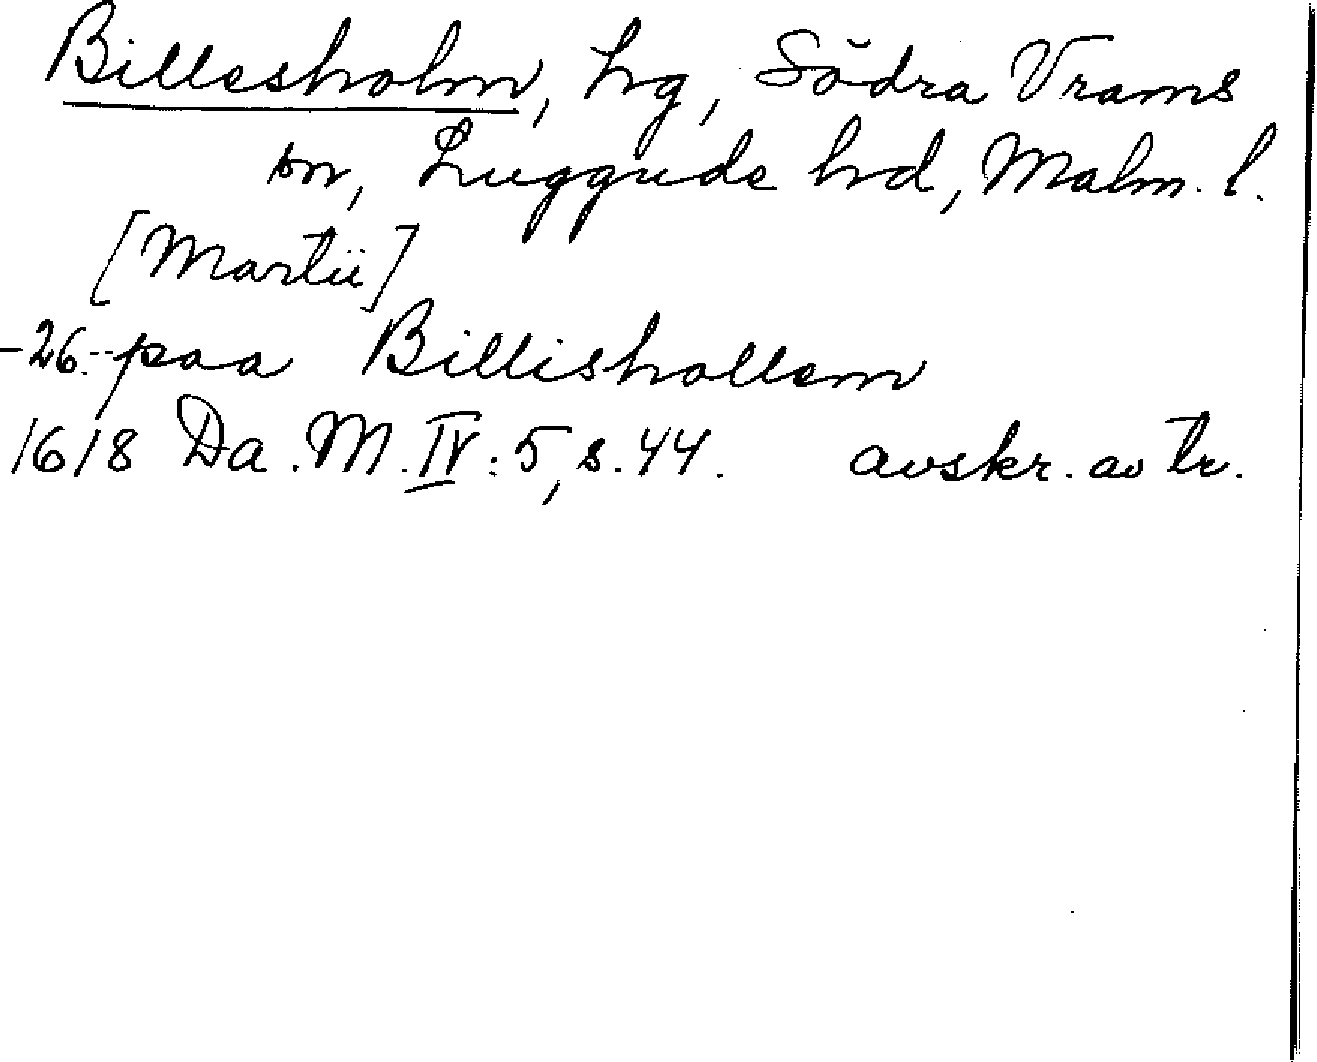 Billesholm, hg, Södra Vrams
sn, Luggude hrd, Malm. l.
[Martii]
-26.- paa Billishollem
1618 Da. M. IV: 5, s. 44. avskr. av tr.